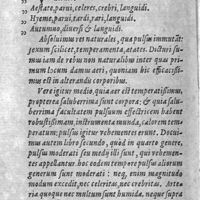 Aestate, parui, celeres, crebri, languidi.
Hyeme, parui, tardi, rari, languidi.
Autumno, diuersi & languidi.
Absoluimus res naturales, quæ pulsus immutāt:
sexum scilicet, temperamenta, ætates. Dicturi sumus
iam de rebus non naturalibus inter quas primum
locum damus aeri, quoniam hic efficacissimus
est in alterandis corporibus.
Vere igitur medio, quia aer est temperatissimus,
propterea saluberrima sunt corpora: & quia saluberrima
facultatem pulsuum effectricem habent
robustissimam, instrumenta munda, calorem temperatum;
pulsus igitur vehementes erunt. Docuimus
autem libro secundo, quòd in quarto genere,
pulsus moderati seu medij illi sunt, qui vehementer
appellantur. hoc eodem tempore pulsus aliorum
generum sunt moderati: neq, enim magnitudo
modum excedit, nec celeritas, nec crebritas. Arteria
quoque nec multum sunt humida, neque supra